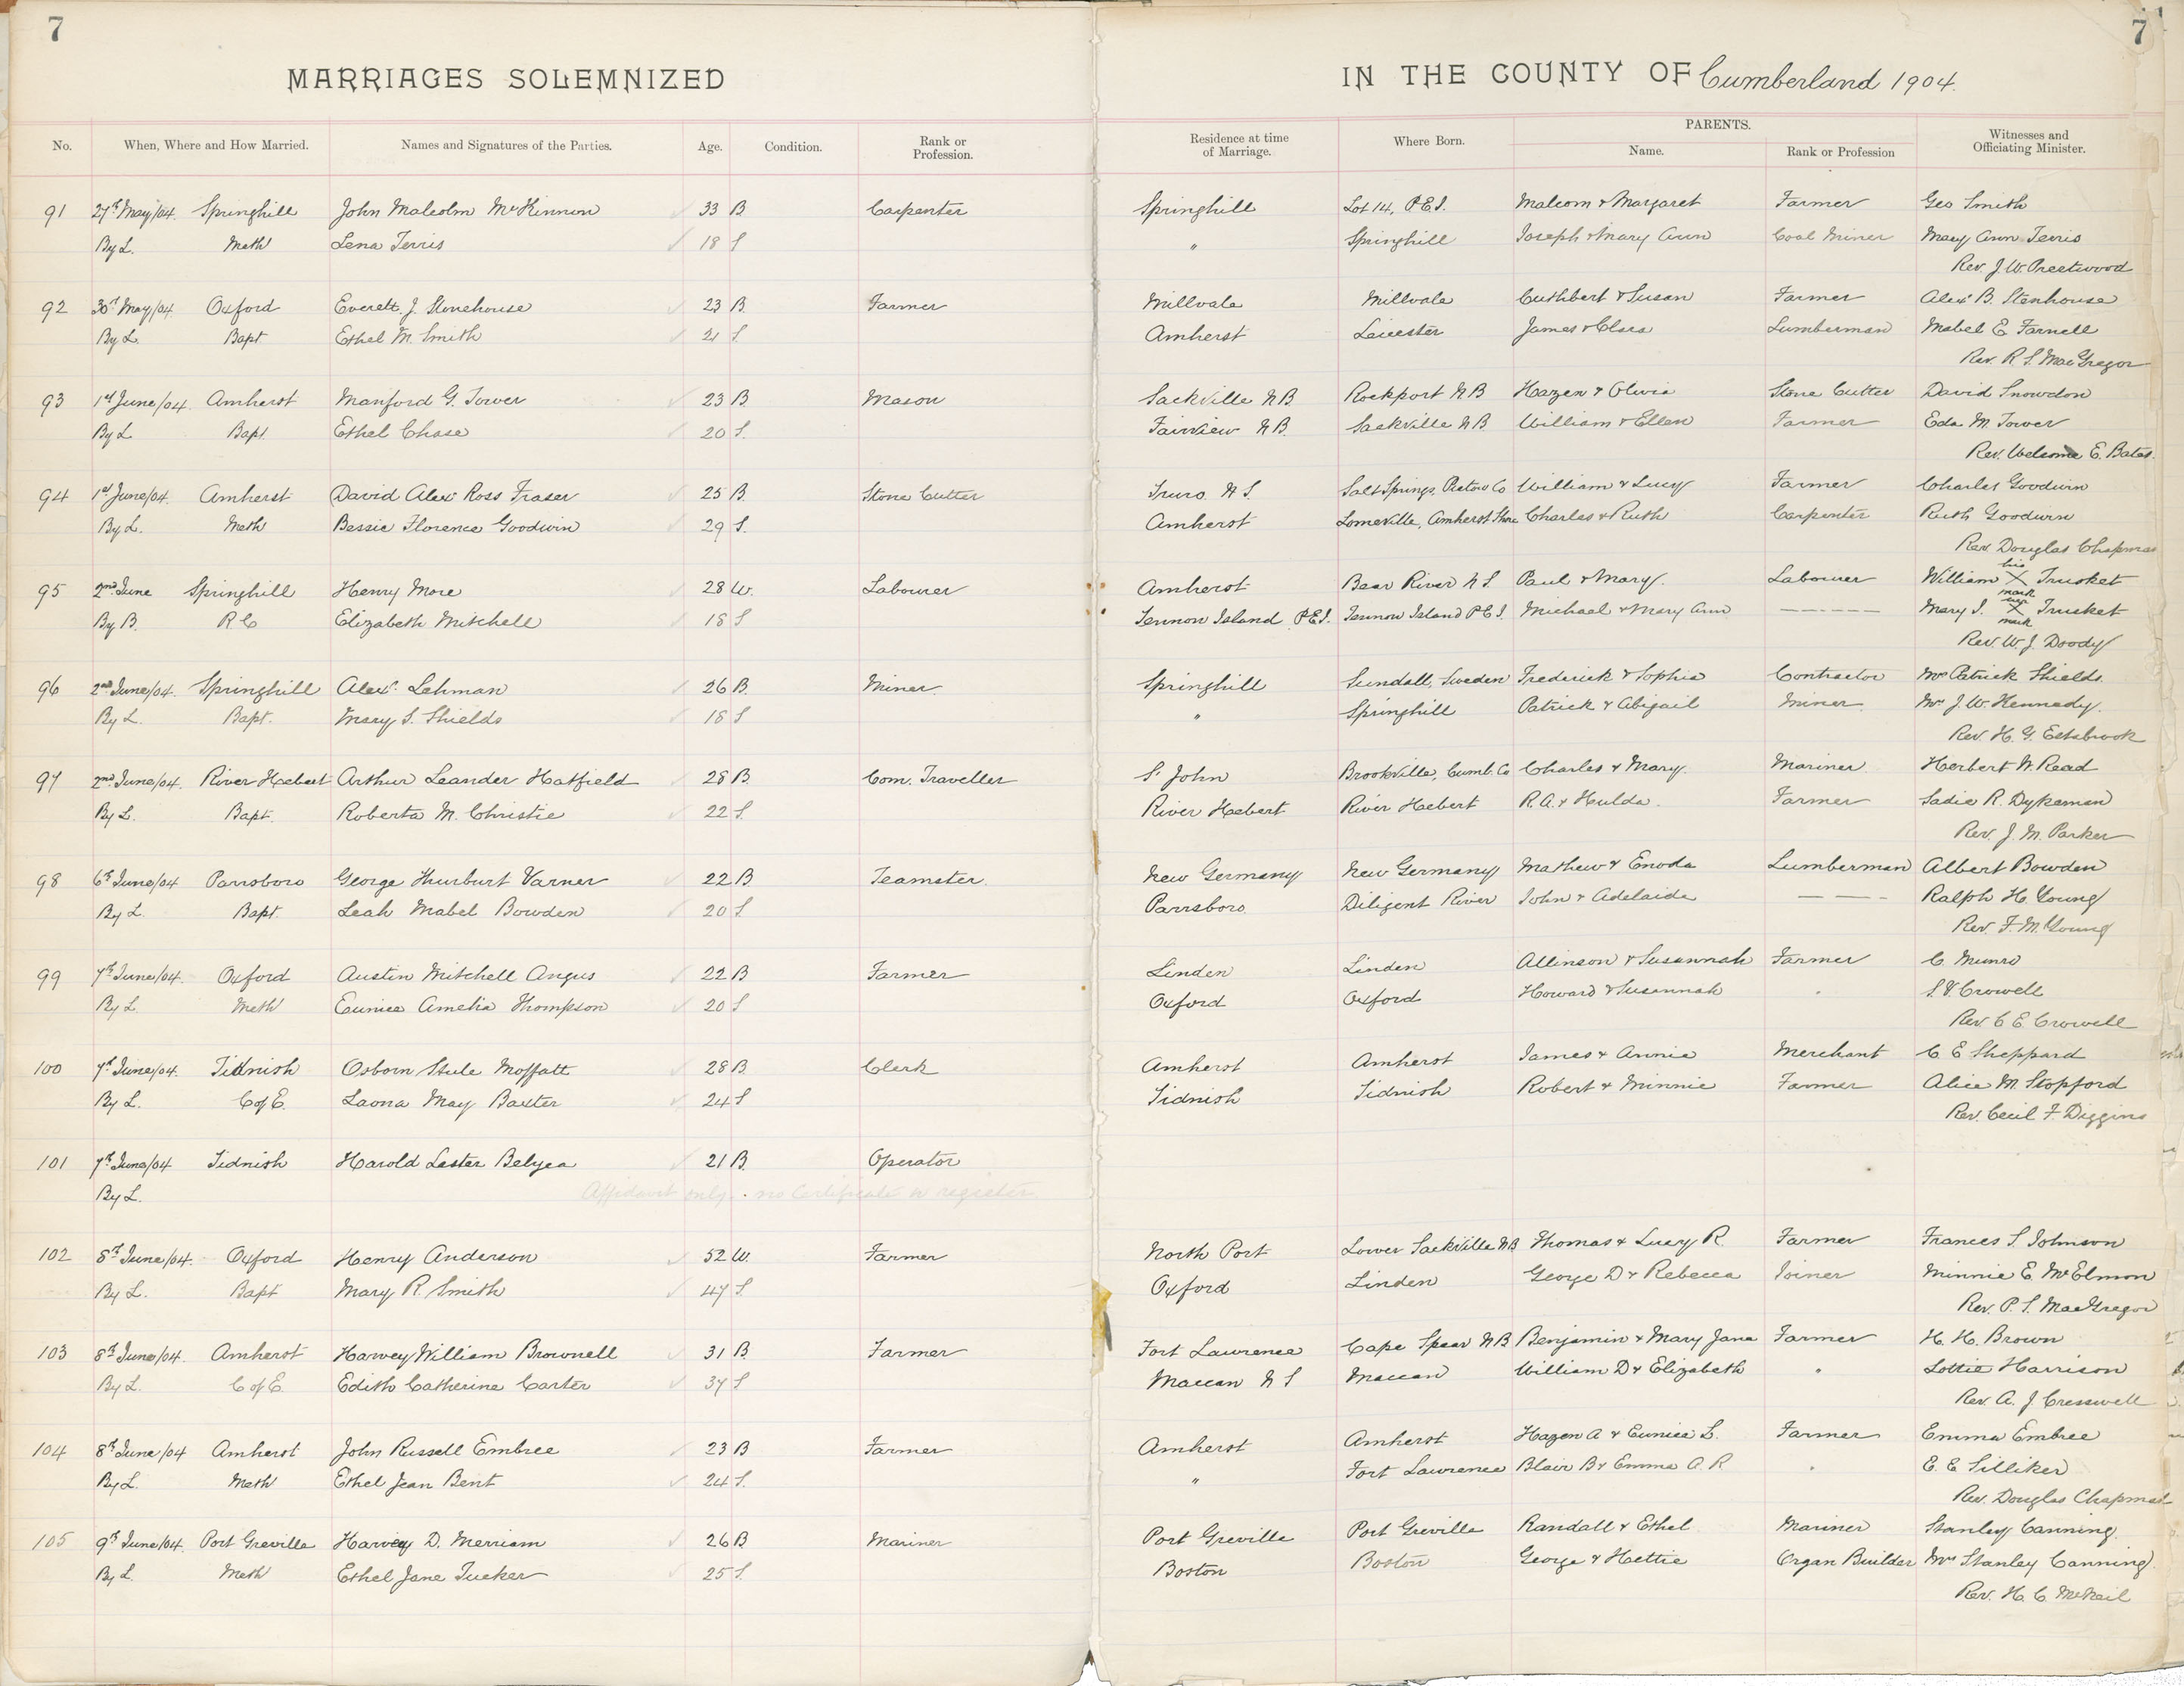 7
7
MARRIAGES SOLEMNIZED IN THE COUNTY OF Cumberland 1904.
No. When, Where and How Married. Names and Signatures of the Parties. Age. Condition. Rank or Profession. Residence at time of Marriage. Where Born. PARENTS. Name. Rank or Profession Witnesses and Officiating Minister.
91 27th May/04. Springhill John Malcolm McKinnon 33 B Carpenter Springhill Lot 14, P.E.I. Malcom & Margaret Farmer Geo Smith
By L. Meth Lena Terris 18 S " Springhill Joseph & Mary Ann Coal Miner Mary Ann Terris
Rev. J. W. Prestwood
92 30th May/04. Oxford Everett J. Stonehouse 23 B. Farmer Millvale Millvale Cuthbert & Susan Farmer Alex B. Stenhouse
By L. Bapt Ethel M. Smith 21 S. Amherst Leicester James & Clara Lumberman Mabel E Farnell
Rev. R. S. MacGregor
93 1st June/04. Amherst Manford G. Tower 23 B. Mason Sackville N B Rockport N B Hazen & Olivia Stone Cutter David Snowdon
By L Bapt. Ethel Chase 20 S. Fairview N B. Sackville N B William & Ellen Farmer Eda M. Tower
Rev. Welcome E. Bates.
94 1st June/04. Amherst David Alex Ross Fraser 25 B. Stone Cutter Truro. N S. Salt Springs, Pictou Co William & Lucy Farmer Charles Goodwin
By L. Meth Bessie Florence Goodwin 29 S. Amherst Lorneville, Amherst Shore Charles & Ruth Carpenter Ruth Goodwin
Rev Douglas Chapman
95 2nd June Springhill Henry More 28 W. Labourer Amherst Bear River N S. Paul & Mary. Labourer William his X mark Trusket
By B. R. C Elizabeth Mitchell 18 S Lennon Island P.E.I. Lennon Island P E I. Michael & Mary Ann ------ Mary I. her X mark Trusket
Rev. W. J. Doody
96 2nd June/04. Springhill Alexr. Lehman 26 B. Miner. Springhill Sundall, Sweden Frederick & Sophia Contractor Mrs Patrick Shields.
By L. Bapt. Mary S. Shields 18 S " Springhill Patrick & Abigail Miner Mrs J. W. Kennedy.
Rev. H. G. Estabrook
97 2nd June/04. River Hebert Arthur Leander Hatfield 28 B. Com. Traveller St John Brookville, Cumb. Co Charles & Mary. Mariner Herbert W. Read
By L. Bapt. Roberta M. Christie 22 S. River Hebert River Hebert R. A. & Hulda. Farmer Sadie R. Dykeman
Rev. J. M. Parker
98 6th June/04 Parrsboro George Hurburt Varner 22 B Teamster. New Germany New Germany Mathew & Enoda Lumberman Albert Bowden
By L Bapt. Leah Mabel Bowden 20 S. Parrsboro. Diligent River John & Adelaide — — - Ralph H. Young
Rev. F. M. Young
99 7th June/04. Oxford Austin Mitchell Angus 22 B Farmer Linden Linden Allinson & Susannah Farmer C. Munro
By L. Meth Eunice Amelia Thompson 20 S Oxford Oxford Howard & Susannah " S. V. Crowell
Rev. C E. Crowell
100 7th June/04. Tidnish Osborn Stule Moffatt 28 B. Clerk Amherst Amherst James & Annie Merchant C E Sheppard
By L. C of E. Laona May Baxter 24 S Tidnish Tidnish Robert & Minnie Farmer Alice M. Stopford
Rev. Cecil F. Diggins
101 7th June/04 Tidnish Harold Lester Belyea 21 B. Operator
By L. Affidavit only. no Certificate or register.
102 8th June/04. Oxford Henry Anderson 52 W. Farmer North Port Lower Sackville N B Thomas & Lucy R. Farmer Frances S. Johnson
By L. Bapt Mary R. Smith 47 S. Oxford Linden George D & Rebecca Joiner Minnie E. McElmon
Rev. P. S. MacGregor
103 8th June/04. Amherst Harvey William Brownell 31 B. Farmer Fort Lawrence Cape Spear N B Benjamin & Mary Jane Farmer H. H. Brown
By L. C of E. Edith Catherine Carter 37 S Maccan N S Maccan William D & Elizabeth " Lottie Harrison
Rev. A. J. Cresswell
104 8th June/04 Amherst John Russell Embree 23 B Farmer Amherst Amherst Hazen A & Eunice L. Farmer Emma Embree
By L. Meth Ethel Jean Bent 24 S. " Fort Lawrence Blair B & Emma A. R " E. E Silliker
Rev. Douglas Chapman
105 9th June/04. Port Greville Harvey D. Merriam 26 B Mariner Port Greville Port Greville Randall & Ethel Mariner Stanley Canning.
By L. Meth Ethel Jane Tucker 25 S. Boston Boston George & Hettie Organ Builder Mrs Stanley Canning.
Rev. H. C. McNeil